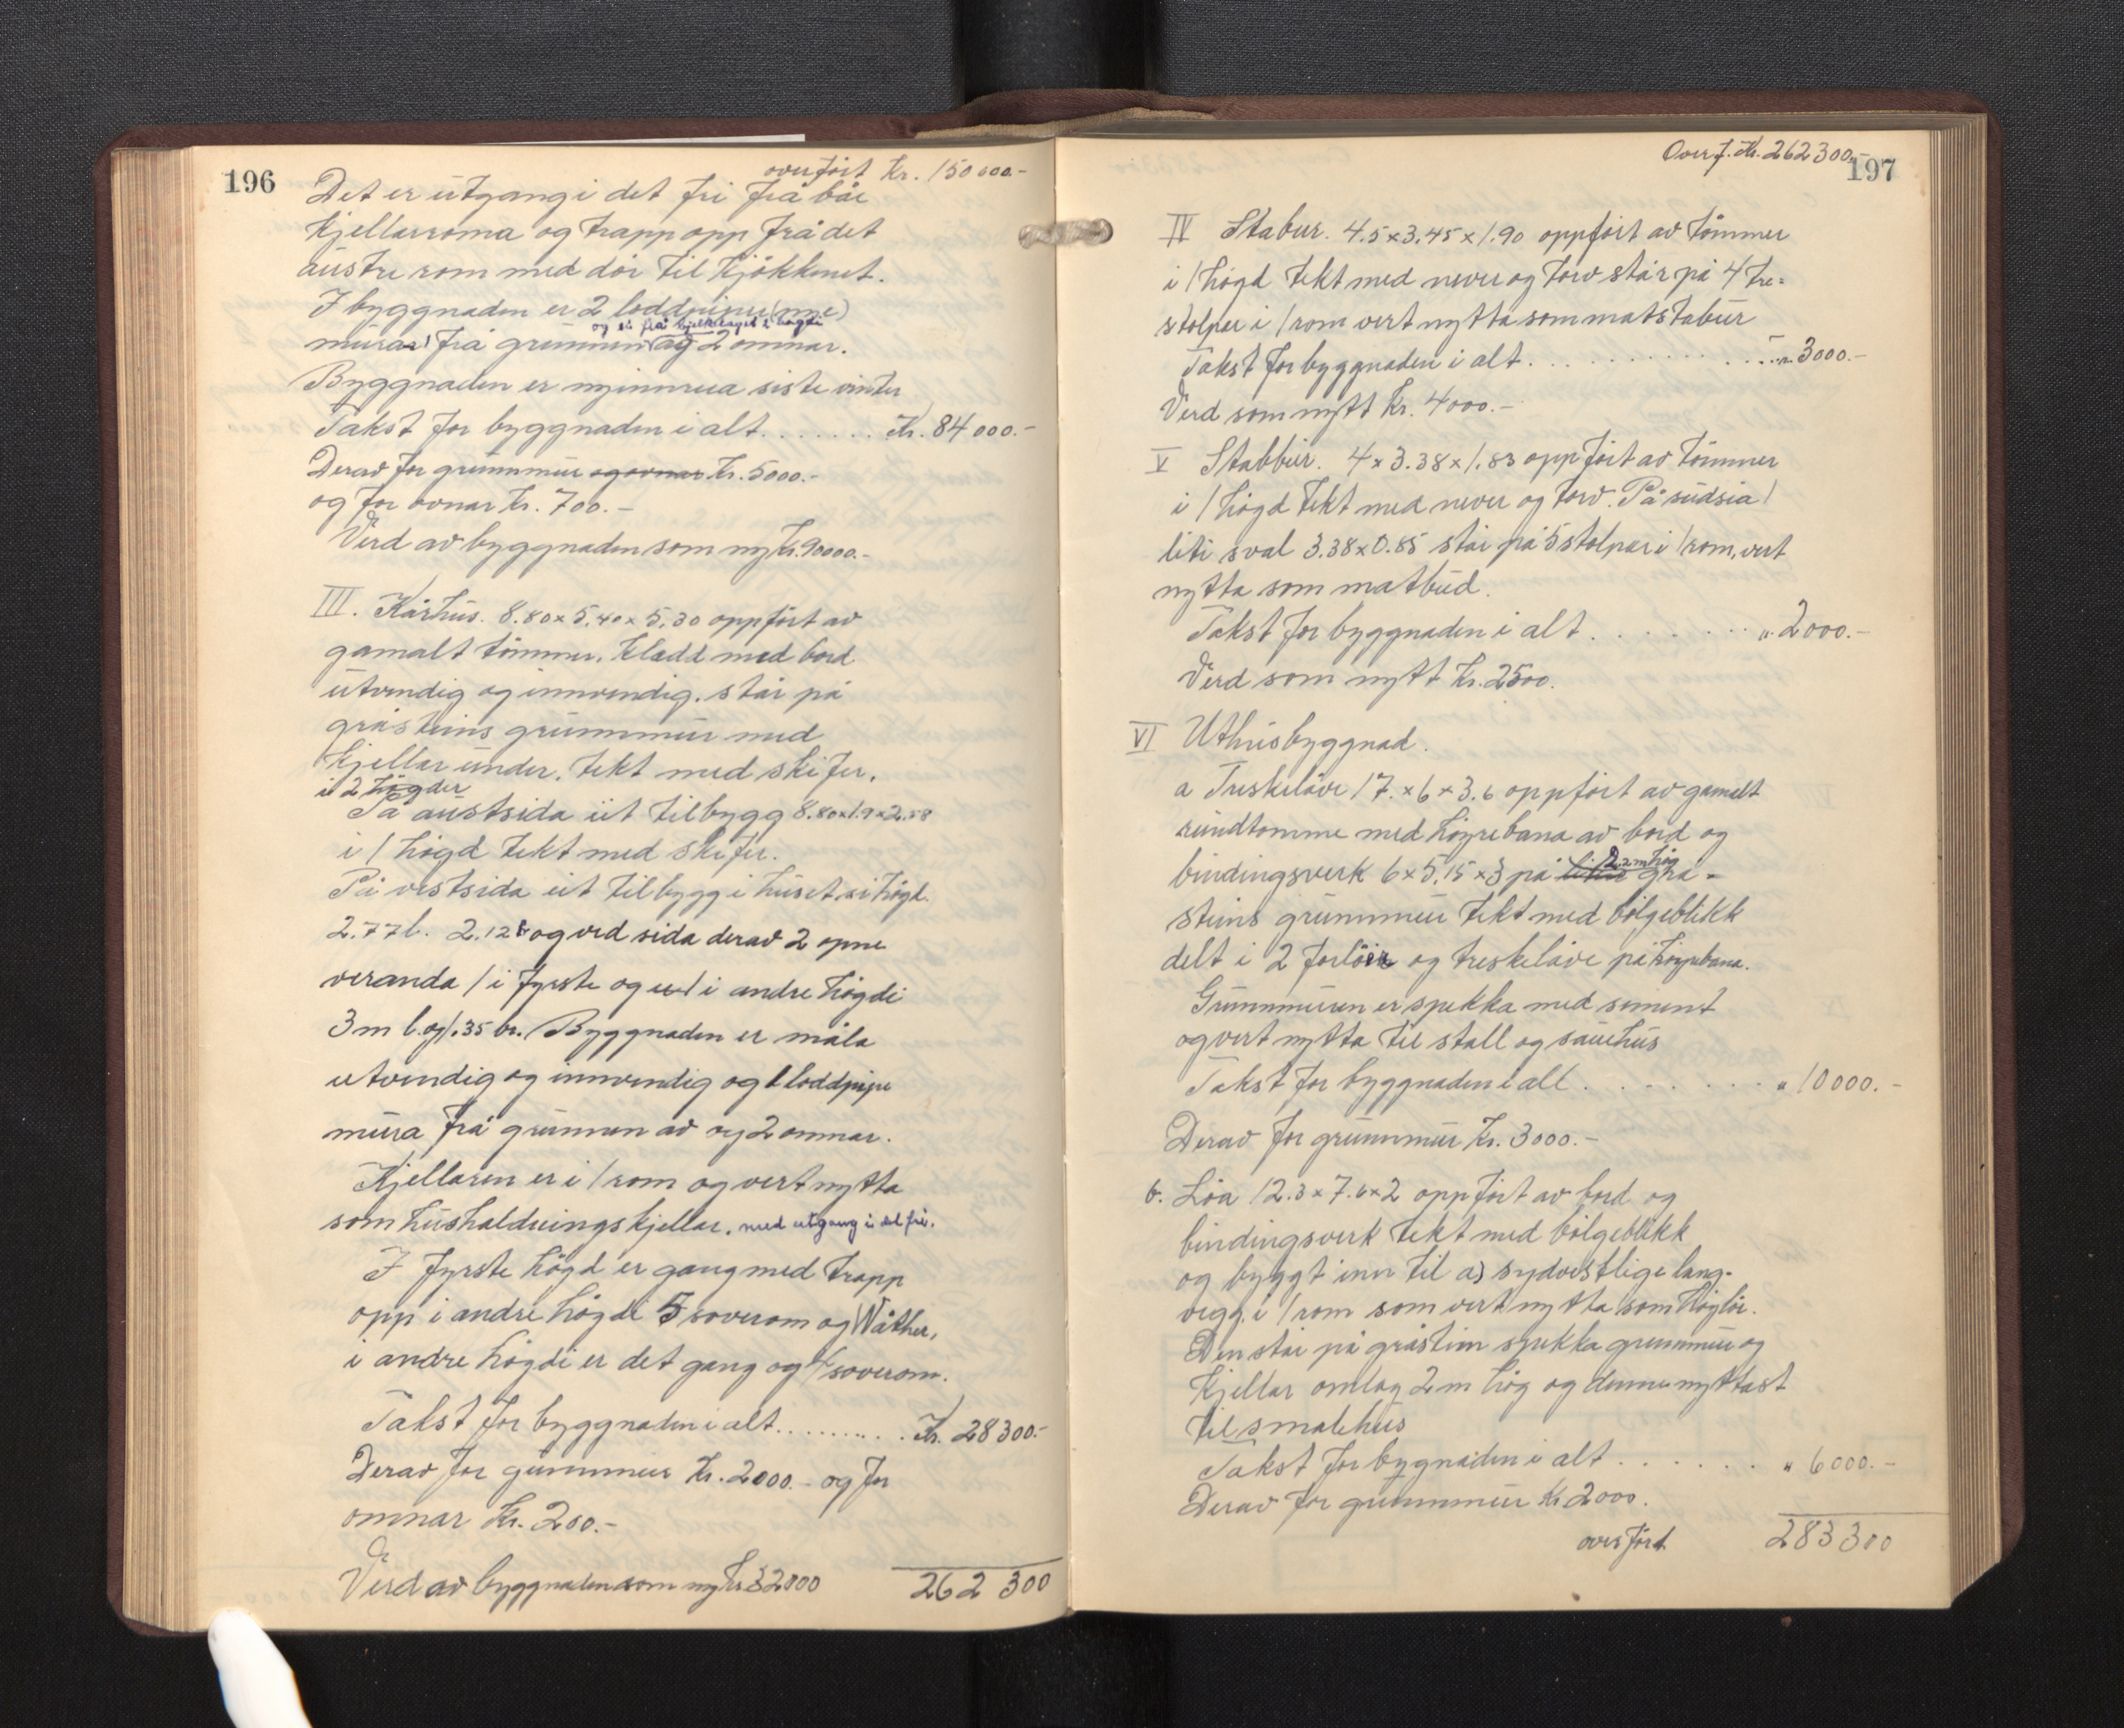 196
overført kr. 150 000.-
Det er utgang i det fri frå båe
kjellarroma og trapp opp frå det
austre rom med dør til kjøkkenet.
I byggnaden er 2 loddpipur (nye)
og ei frå bjelkelaget 2 høgdi
mura 1 frå grunnen og 2 omnar.
Byggnaden er nyinnreia siste vinter
Takst for byggnaden i alt....... Kr. 84 000.-
Derav for grunnmur og ovnar kr. 5000.-
og for ovnar kr. 700.-
Verd av byggnaden som ny kr. 90000.-
III. Kårhus. 8.80 x 5.40 x 5.30 oppført av
gamalt tømmer, klædd med bord
utvendig og innvendig. står på
gråsteins grunnmur med
kjellar under. tekt med skifer.
i 2 høgder
På austsida eit tilbygg 8.80x1.9x2.58
i 1 høgd tekt med skifer.
På vestsida eit tilbygg i huset si høgd.
2.77 l. 2.12 b og ved sida derav 2 opne
veranda 1 i fyrste og 1 i andre høgdi
3 m l. og 1.35 br. Byggnaden er måla
utvendig og innvendig og 1 loddpipe
mura frå grunnen av og 2 omnar.
Kjellaren er i 1 rom og vert nytta
som hushaldningskjellar. med utgang i det fri.
I fyrste høgd er gang med trapp
opp i andre høgdi 5 soverom og
i andre høgdi er det gang og 4 soverom.
Takst for byggnaden i alt.......... Kr. 28 300.-
Derav for grunnmur kr. 2000.- og for
omnar kr. 200.-
Verd av byggnaden som ny kr 32000
262 300
Overf. Kr. 262 300.-
197
IV Stabur. 4.5 x 3.45 x 1.90 oppført av tømmer
i 1 høgd tekt med never og torv står på 4 tre-
stolper i 1 rom vert nytta som matstabur
Takst for byggnaden i alt............ " 3000.-
Verd som nytt kr. 4000.-
V Stabbur. 4 x 3.38 x 1.83 oppført av tømmer
i 1 høgd tekt med never og torv. På sudsia 1
liti sval 3.38 x 0.85 står på 5 stolpar i 1 rom, vert
nytta som matbud.
Takst for byggnaden i alt......... " 2000.-
Verd som nytt kr. 2500.
VI Uthusbyggnad.
a Treskelåve 17. x 6 x 3.6 oppført av gamalt
rundtømme med høyrebana av bord og
2.2 m høg
bindingsverk 6 x 5.15 x 3 på grå-
steins grunnmur tekt med bølgeblikk
delt i 2 forløer og treskelåve på høyrebana.
Grunnmuren er spekka med sement
og vert nytta til stall og sauehus
Takst for byggnaden i alt......... " 10000.-
Derav for grunnmur kr. 3000.-
b. Løa 12.3 x 7.6 x 2 oppført av bord og
bindingsverk tekt med bølgeblikk
og byggt inn til a) sydvestlige lang-
vegg i 1 rom som vert nytta som høyløe.
Den står på gråstein spekka grunnmur og
kjellar omlag 2 m høg og denne nyttast
til smalehus
Takst for byggnaden i alt....... " 6000.-
Derav for grunnmur kr 2000.
overført. 283 300